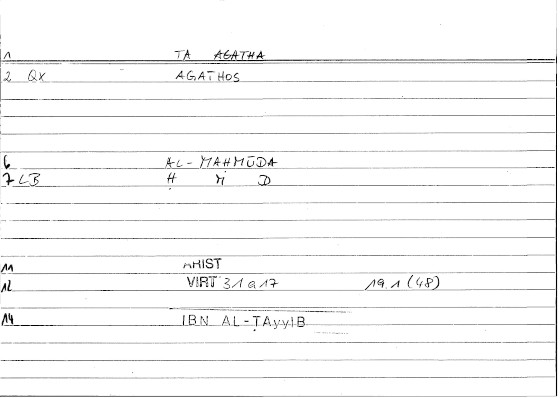 1 TA AGATHA
2 QX AGATHOS
6 AL-MAHMŪDA
7 LB Ḥ M D
11 ARIST
12 VIRT 31a17 19,1 (48)
14 IBN AL-ṬAyyIB